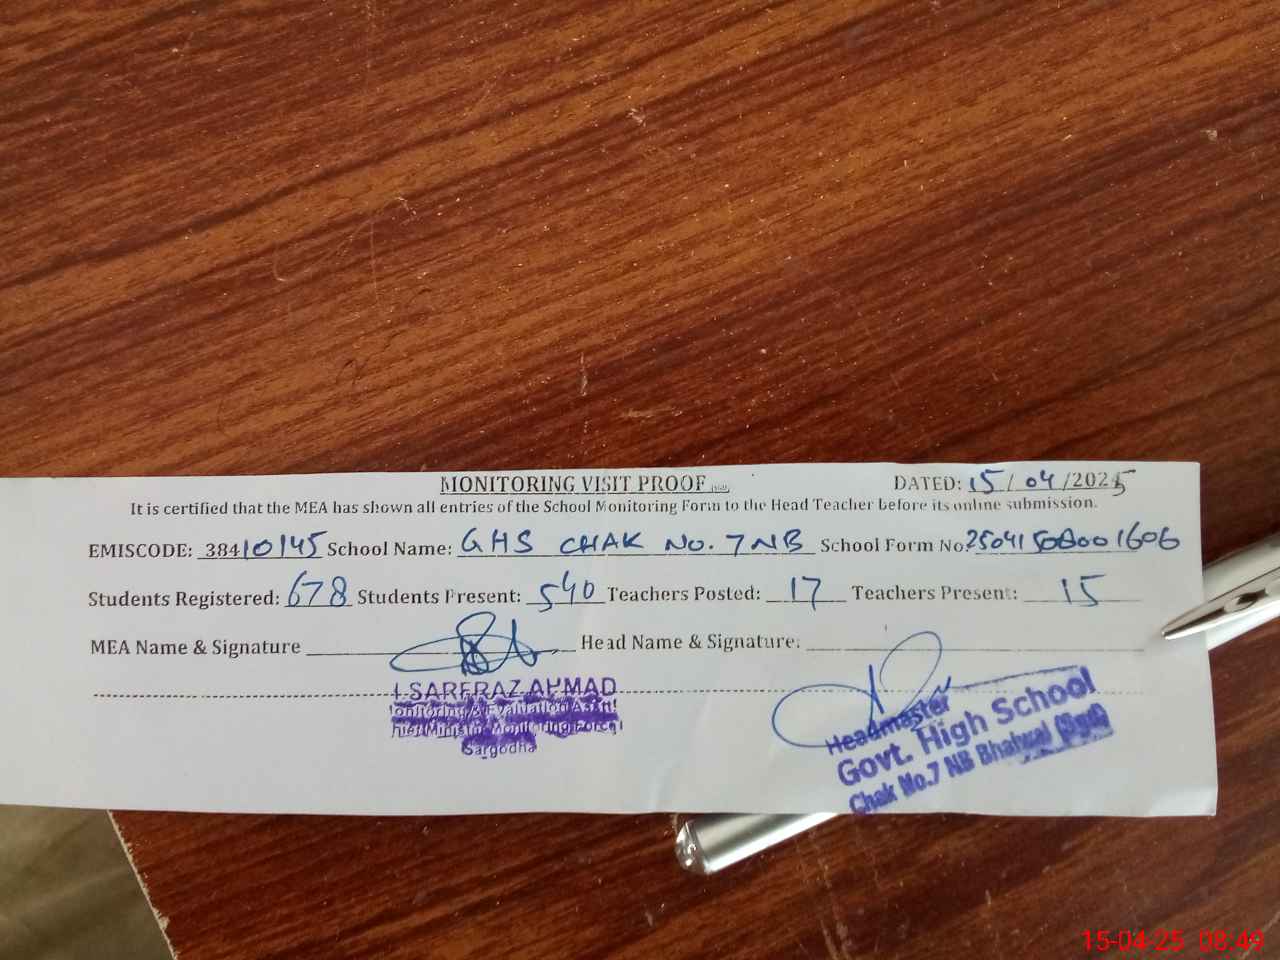 MONITORING VISIT PROOF DATED: 15/04/2025
It is certified that the MEA has shown all entries of the School Monitoring Form to the Head Teacher before its online submission.
EMISCODE: 38410145 School Name: GHS CHAK No. 7NB School Form No.
Students Registered: 678 Students Present: 540 Teachers Posted: 17 Teachers Present: 15
MEA Name & Signature Head Name & Signature:
SARFRAZ AHMAD
Monitoring & Evaluation
Chief Minister Monitoring Force
Sargodha
Headmaster
Govt. High School
Chak No.7 NB Bhalwal (Sgd)
15-04-25 08:49